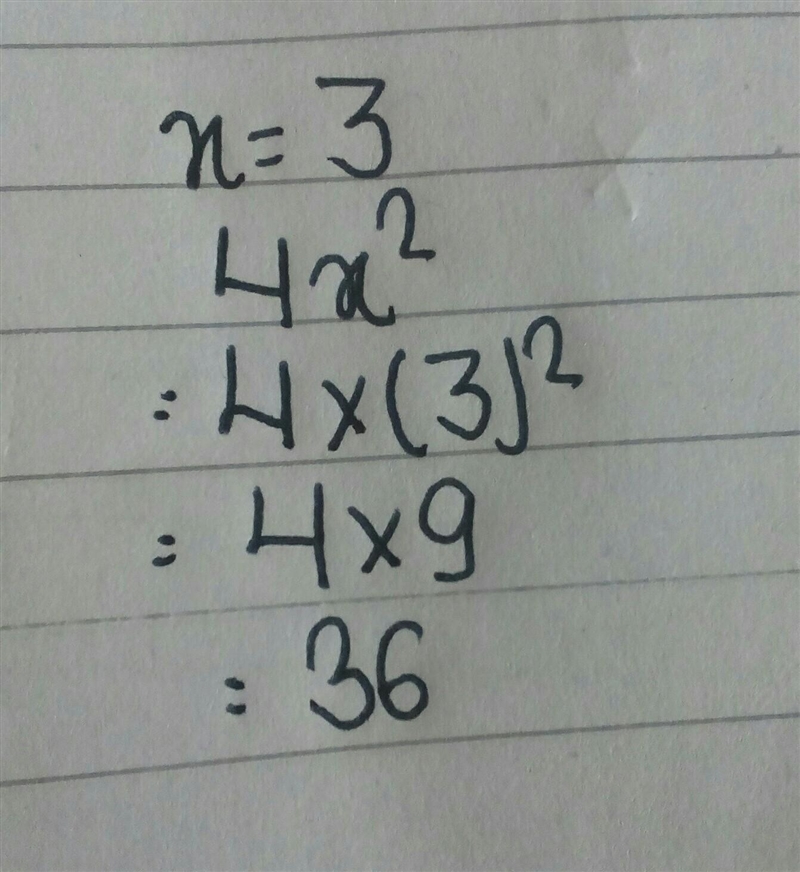 x = 3
4x²
= 4 × (3)²
= 4 × 9
= 36